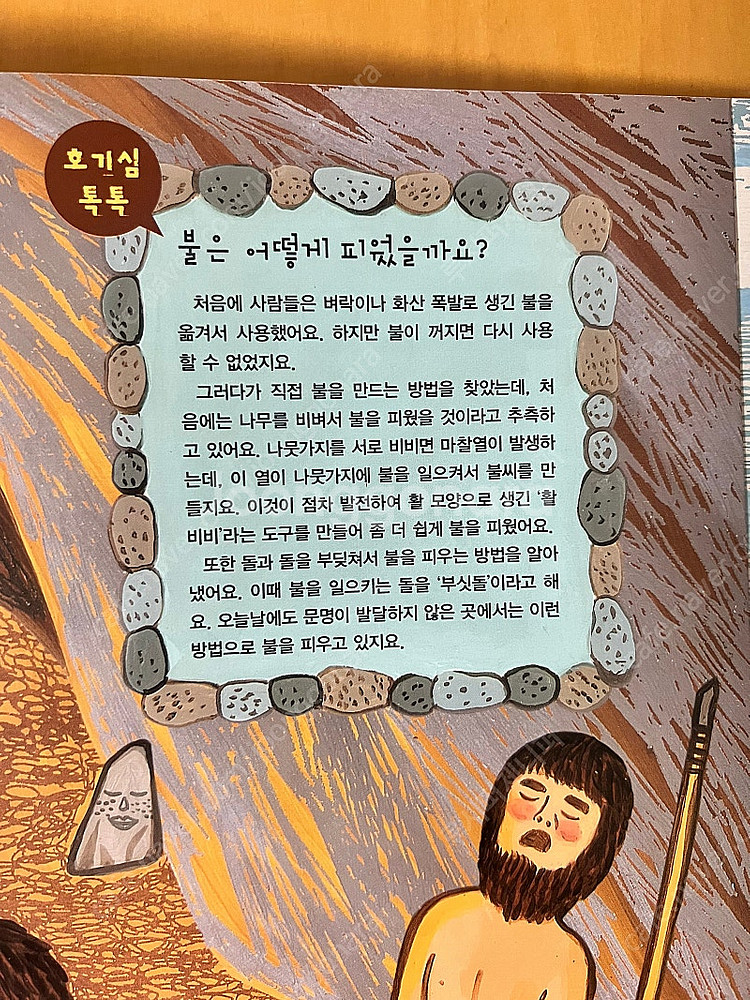 호기심
톡톡
불은 어떻게 피웠을까요?
처음에 사람들은 벼락이나 화산 폭발로 생긴 불을
옮겨서 사용했어요. 하지만 불이 꺼지면 다시 사용
할 수 없었지요.
그러다가 직접 불을 만드는 방법을 찾았는데, 처
음에는 나무를 비벼서 불을 피웠을 것이라고 추측하
고 있어요. 나뭇가지를 서로 비비면 마찰열이 발생하
는데, 이 열이 나뭇가지에 불을 일으켜서 불씨를 만
들지요. 이것이 점차 발전하여 활 모양으로 생긴 ‘활
비비’라는 도구를 만들어 좀 더 쉽게 불을 피웠어요.
또한 돌과 돌을 부딪쳐서 불을 피우는 방법을 알아
냈어요. 이때 불을 일으키는 돌을 ‘부싯돌’이라고 해
요. 오늘날에도 문명이 발달하지 않은 곳에서는 이런
방법으로 불을 피우고 있지요.